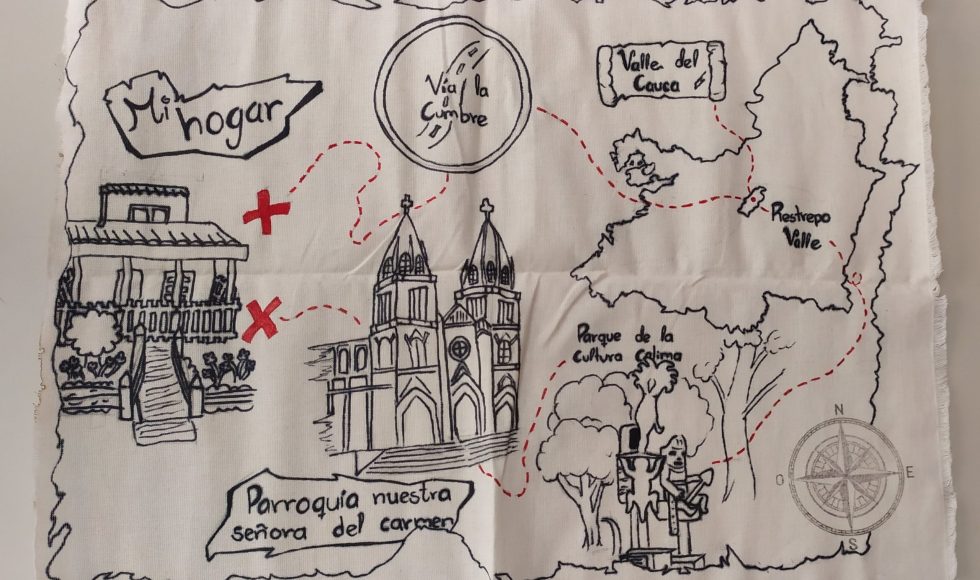 Mi hogar
Vía la
Cumbre
Valle del
Cauca
Restrepo
Valle
Parque de la
Cultura Calima
Parroquia nuestra
señora del carmen
N
O
E
S